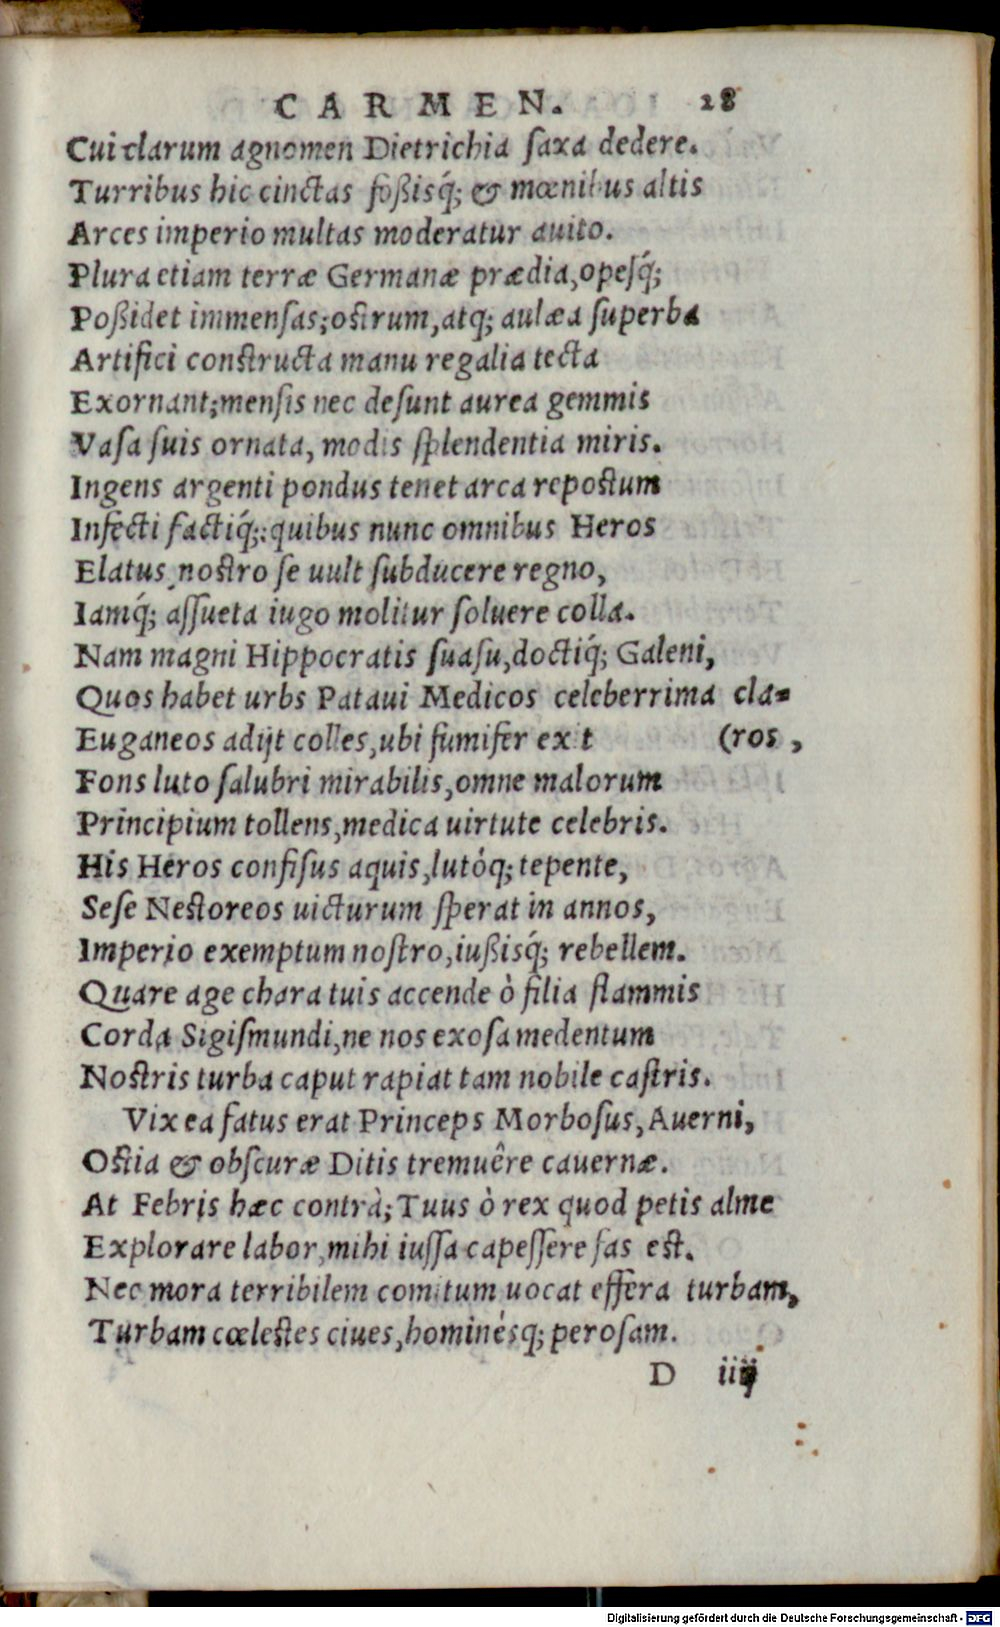 CARMEN. 28
Cui clarum agnomen Dietrichia ſaxa dedere.
Turribus hic cinctas foßisq́; & mœnibus altis
Arces imperio multas moderatur auito.
Plura etiam terræ Germanæ prædia, opesq́;
Poßidet immenſas; oſtrum, atq; aulæa ſuperba
Artifici conſtructa manu regalia tecta
Exornant; menſis nec deſunt aurea gemmis
Vaſa ſuis ornata, modis ſplendentia miris.
Ingens argenti pondus tenet arca repoſtum
Infecti factiq́;: quibus nunc omnibus Heros
Elatus noſtro ſe uult ſubducere regno,
Iamq́; aſſueta iugo molitur ſoluere colla.
Nam magni Hippocratis ſuaſu, doctiq́; Galeni,
Quos habet urbs Pataui Medicos celeberrima cla-
Euganeos adijt colles, ubi fumifer exit (ros,
Fons luto ſalubri mirabilis, omne malorum
Principium tollens, medica uirtute celebris.
His Heros confiſus aquis, lutóq; tepente,
Seſe Neſtoreos uicturum ſperat in annos,
Imperio exemptum noſtro, iußisq́; rebellem.
Quare age chara tuis accende ò filia flammis
Corda Sigiſmundi, ne nos exoſa medentum
Noſtris turba caput rapiat tam nobile caſtris.
Vix ea fatus erat Princeps Morboſus, Auerni,
Oſtia & obſcuræ Ditis tremuêre cauernæ.
At Febris hæc contrà; Tuus ò rex quod petis alme
Explorare labor, mihi iuſſa capeſſere fas eſt.
Nec mora terribilem comitum uocat effera turbam,
Turbam cœleſtes ciues, hominésq; peroſam.
D iiij
Digitalisierung gefördert durch die Deutsche Forschungsgemeinschaft - DFG